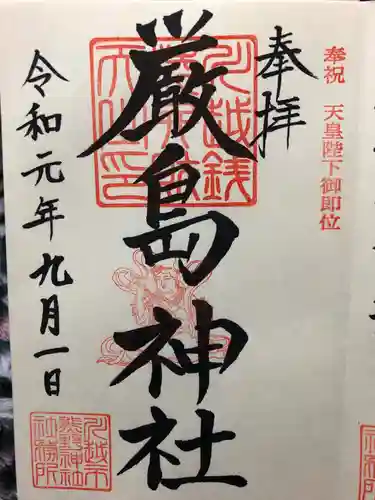 奉祝 天皇陛下御即位
奉拝
厳島神社
令和元年九月一日
川越市
熊野神社
社務所